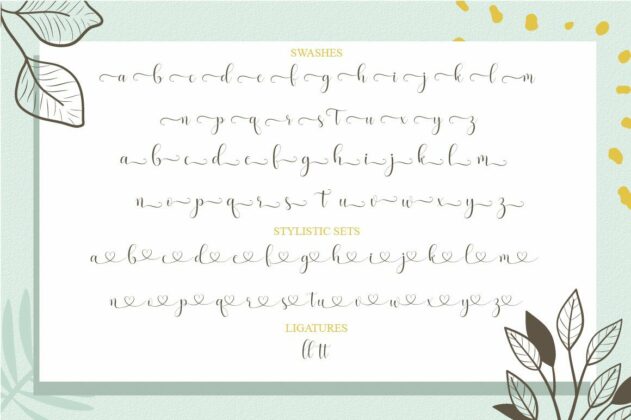 SWASHES
a b c d e f g h i j k l m
n p q r s T u x y z
a b c d e f g h i j k l m
n o p q r s T u v w x y z
STYLISTIC SETS
a b c d e f g h i j k l m
n o p q r s t u v w x y z
LIGATURES
ll tt